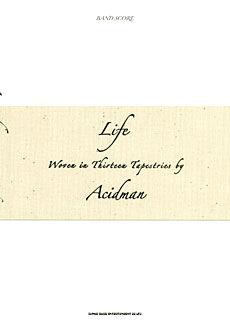 BAND SCORE
Life
Woven in Thirteen Tapestries by
Acidman